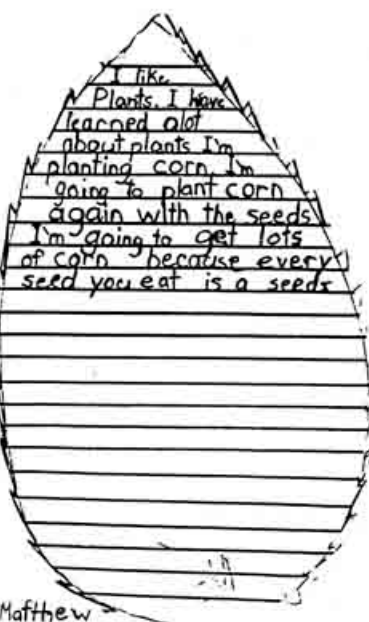 I like
Plants. I have
learned alot
about plants I'm
planting corn. I'm
going to plant corn
again with the seeds
I'm going to get lots
of corn because every
seed you eat is a seeds
Matthew